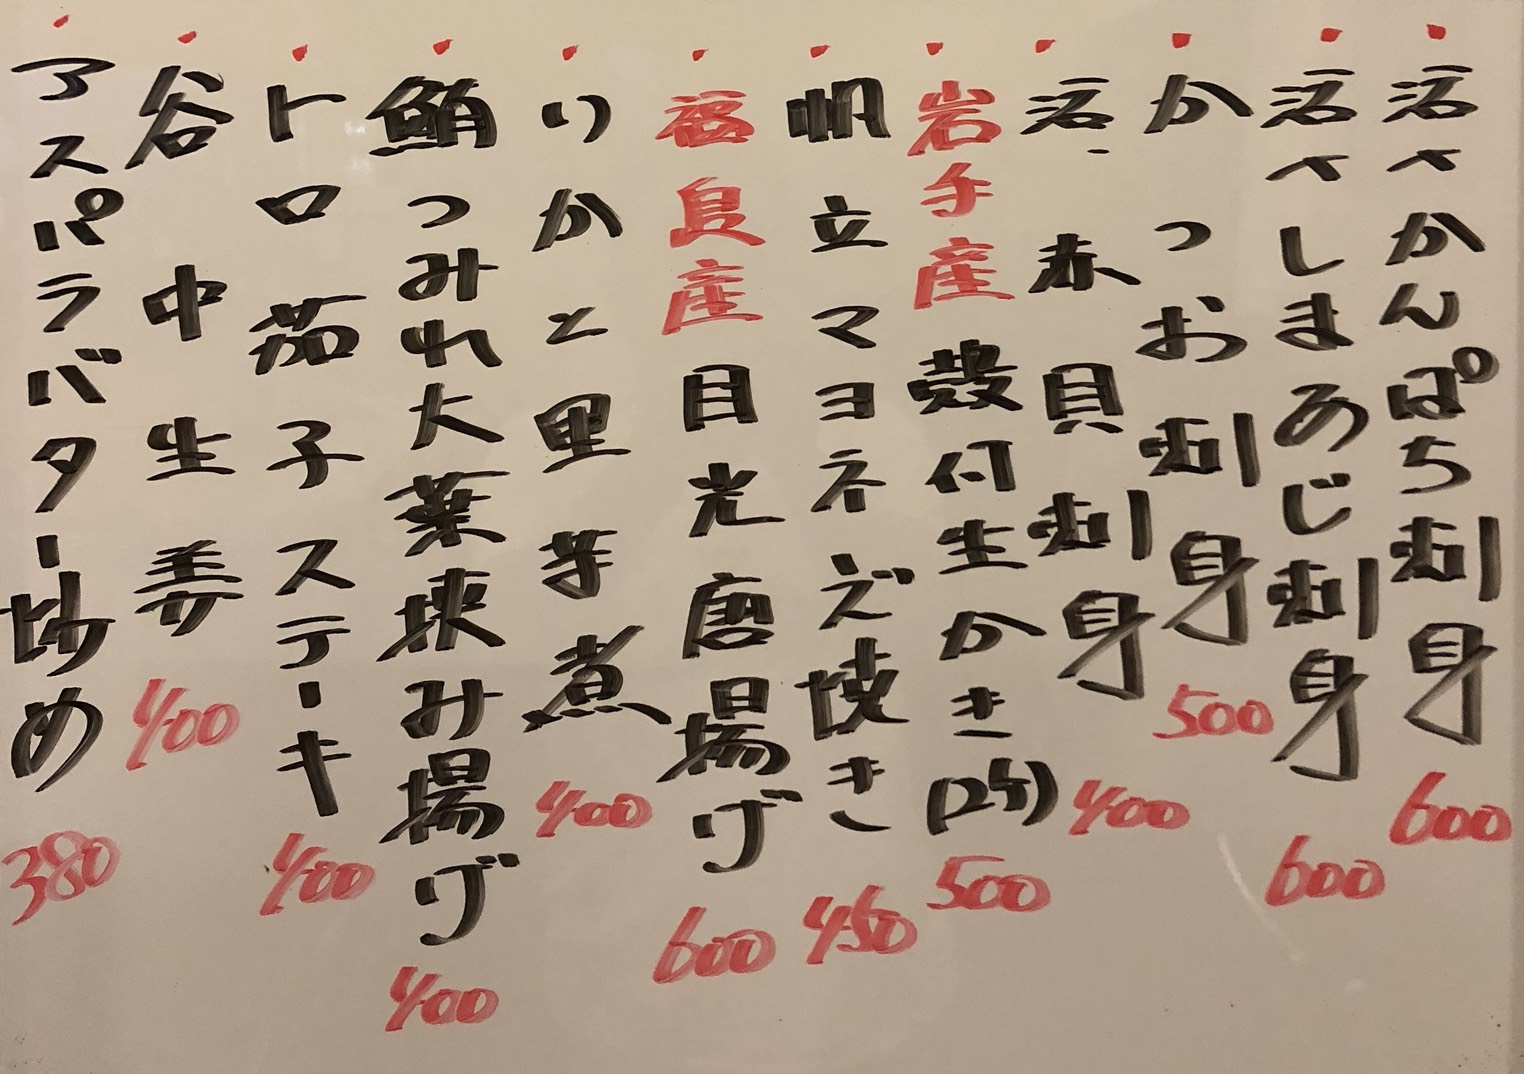 活〆かんぱち刺身 600
活〆しまあじ刺身 600
かつお刺身 500
活〆赤貝刺身 400
岩手産殻付生かき(2ケ) 500
帆立マヨネーズ焼き 450
福島産目光唐揚げ 600
いかと里芋煮 400
鮪つみれ大葉挟み揚げ 400
トロ茄子ステーキ 400
谷中生姜 400
アスパラバター炒め 380